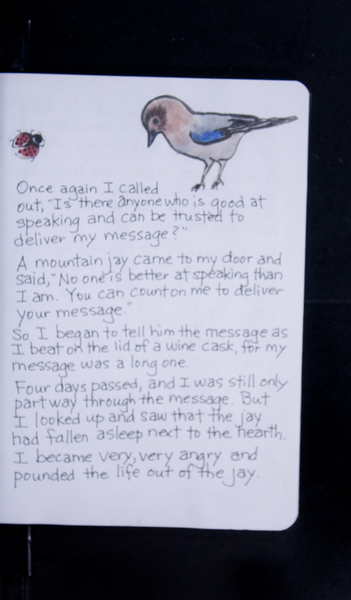 Once again I called
out, "Is there anyone who is good at
speaking and can be trusted to
deliver my message?"
A mountain jay came to my door and
said, "No one is better at speaking than
I am. You can count on me to deliver
your message."
So I began to tell him the message as
I beat on the lid of a wine cask, for my
message was a long one.
Four days passed, and I was still only
part way through the message. But
I looked up and saw that the jay
had fallen asleep next to the hearth.
I became very, very angry and
pounded the life out of the jay.